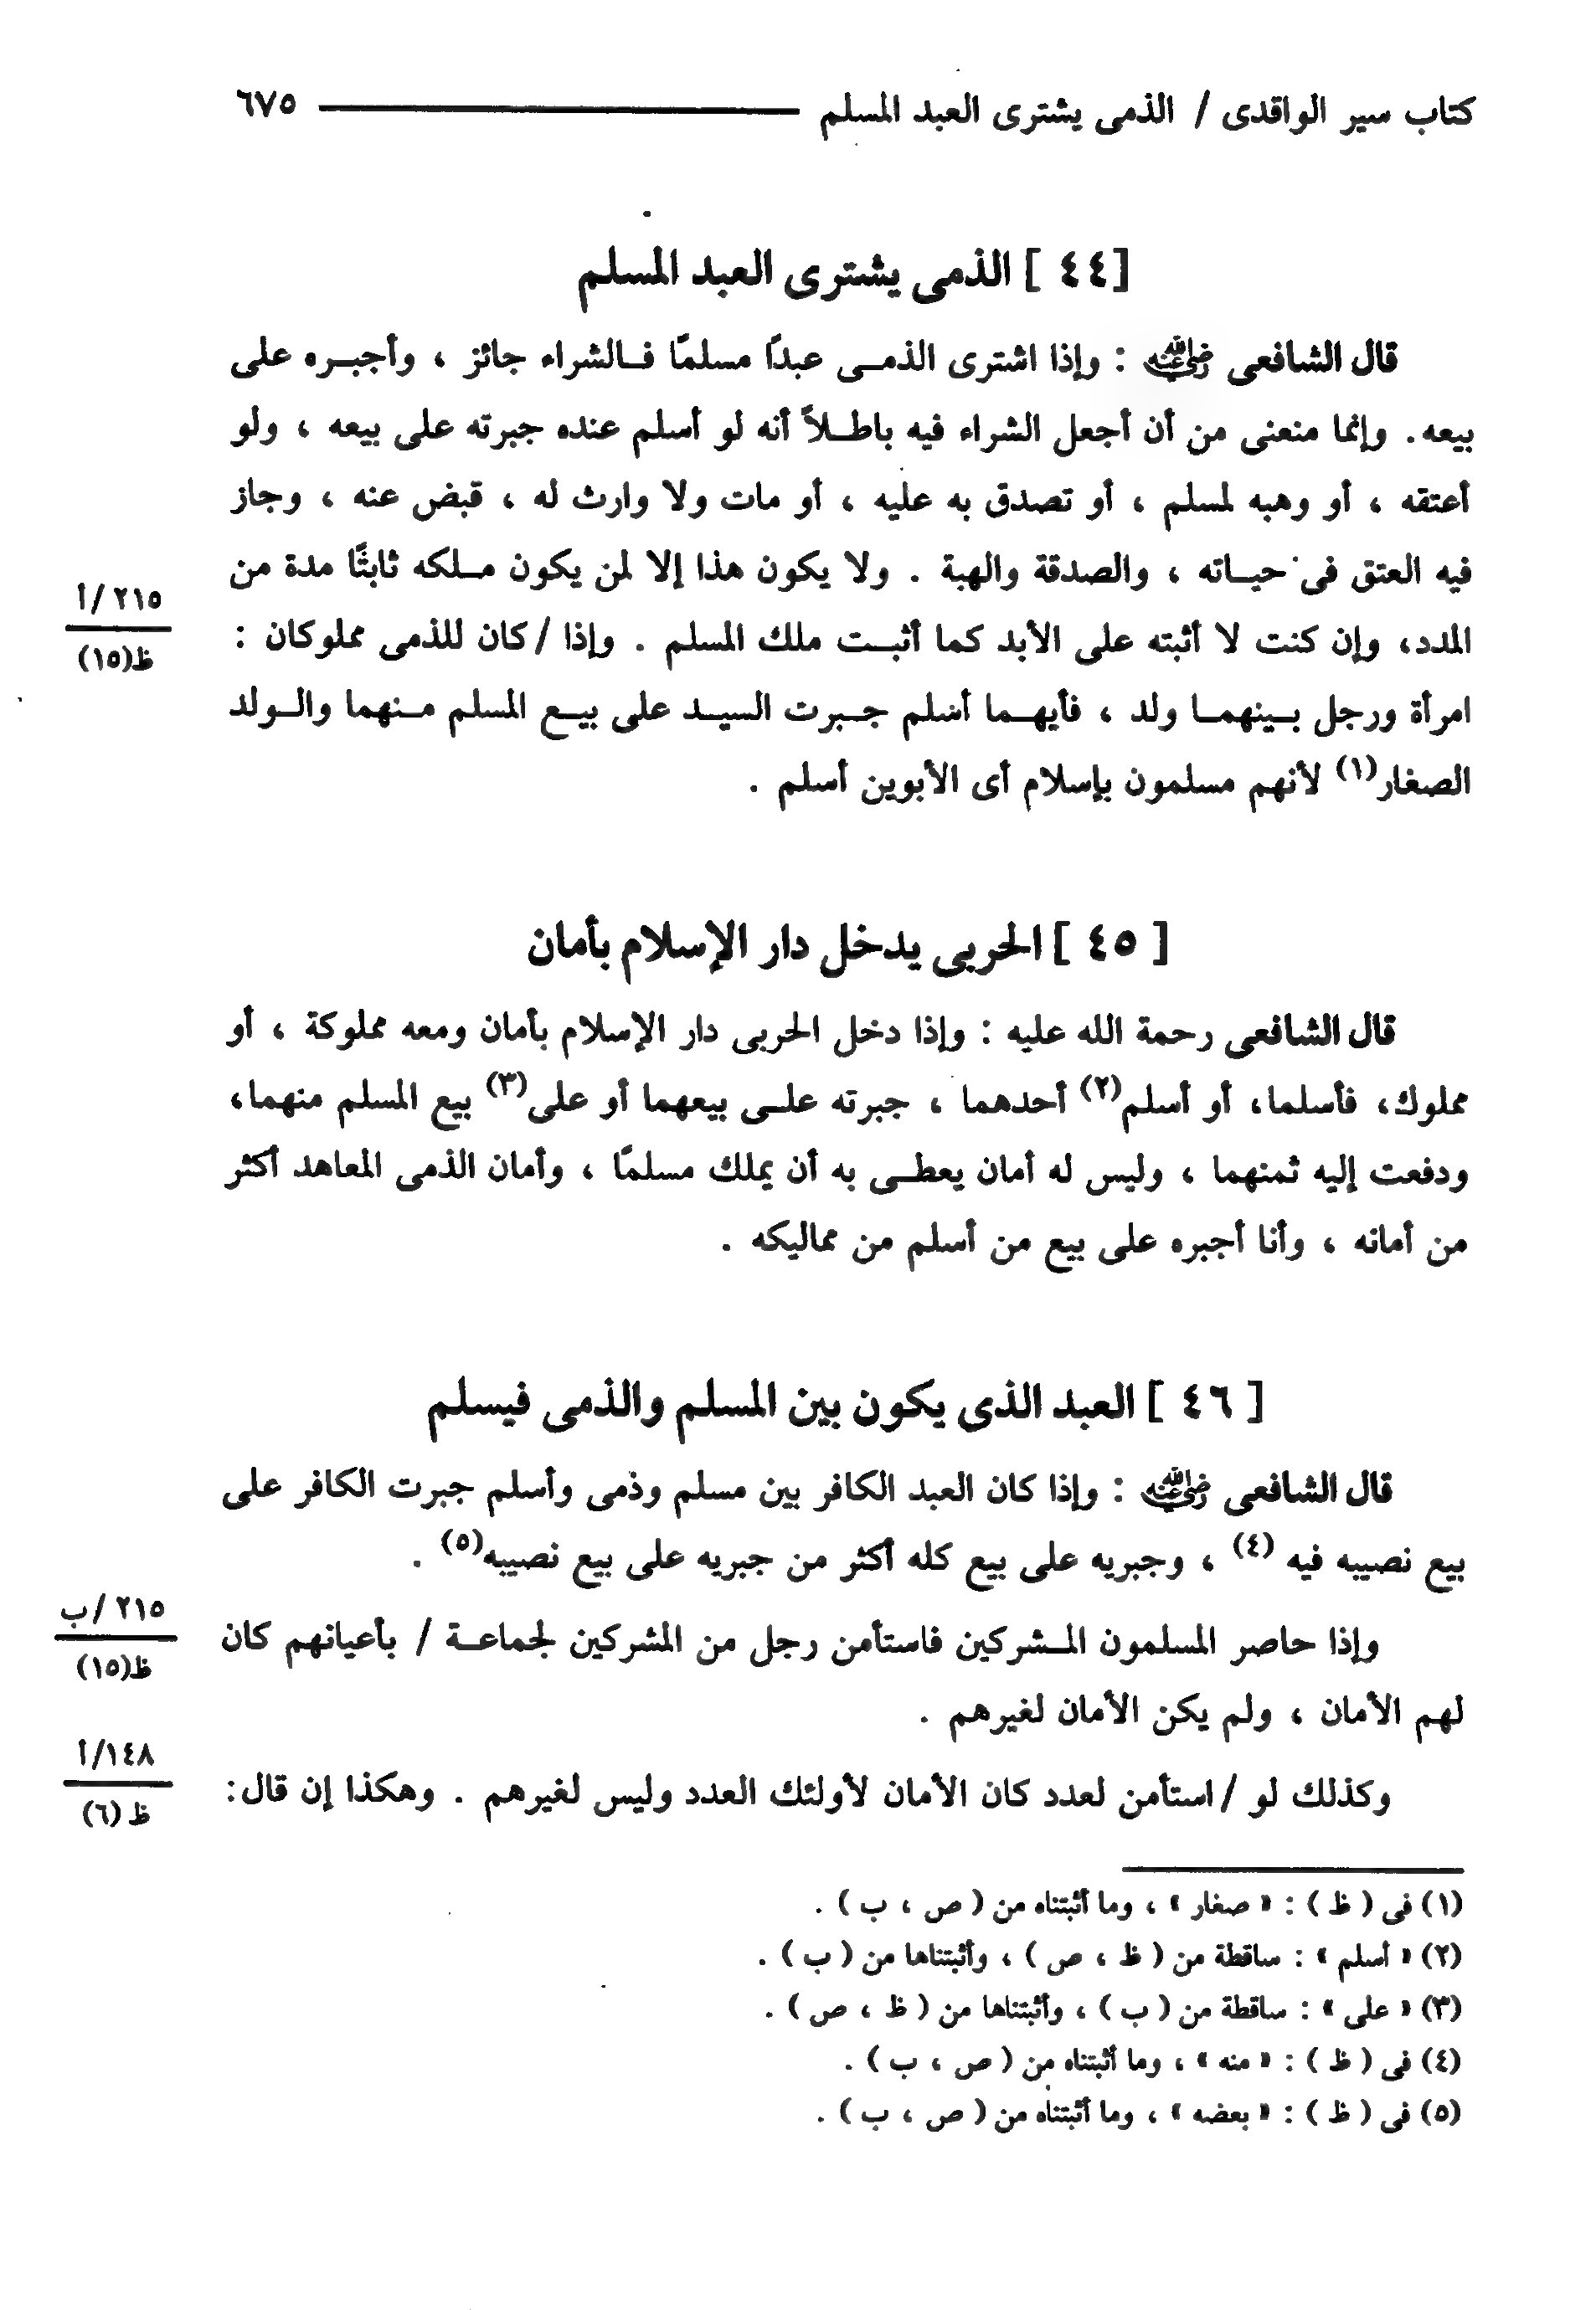 كتاب سير الواقدى / الذمى يشترى العبد المسلم ٦٧٥
[٤٤ ] الذمى يشترى العبد المسلم
قال الشافعى رضي الله عنه : وإذا اشترى الذمى عبدًا مسلمًا فالشراء جائز ، وأجبره على
بيعه. وإنما منعنى من أن أجعل الشراء فيه باطلاً أنه لو أسلم عنده جبرته على بيعه ، ولو
أعتقه ، أو وهبه لمسلم ، أو تصدق به عليه ، أو مات ولا وارث له ، قبض عنه ، وجاز
فيه العتق فى حياته ، والصدقة والهبة . ولا يكون هذا إلا لمن يكون ملكه ثابتًا مدة من
٢١٥ /أ
المدد، وإن كنت لا أثبته على الأبد كما أثبت ملك المسلم . وإذا / كان للذمى مملوكان :
ظ(١٥)
امرأة ورجل بينهما ولد ، فأيهما أسلم جبرت السيد على بيع المسلم منهما والولد
الصغار(١) لأنهم مسلمون بإسلام أى الأبوين أسلم .
[ ٤٥ ] الحربى يدخل دار الإسلام بأمان
قال الشافعى رحمة الله عليه : وإذا دخل الحربى دار الإسلام بأمان ومعه مملوكة ، أو
مملوك، فأسلما، أو أسلم(٢) أحدهما ، جبرته على بيعهما أو على(٣) بيع المسلم منهما،
ودفعت إليه ثمنهما ، وليس له أمان يعطى به أن يملك مسلمًا ، وأمان الذمى المعاهد أكثر
من أمانه ، وأنا أجبره على بيع من أسلم من مماليكه .
[ ٤٦ ] العبد الذى يكون بين المسلم والذمى فيسلم
قال الشافعى رضي الله عنه : وإذا كان العبد الكافر بين مسلم وذمى وأسلم جبرت الكافر على
بيع نصيبه فيه (٤) ، وجبريه على بيع كله أكثر من جبريه على بيع نصيبه(٥) .
٢١٥ /ب
وإذا حاصر المسلمون المشركين فاستأمن رجل من المشركين لجماعة / بأعيانهم كان
ظ(١٥)
لهم الأمان ، ولم يكن الأمان لغيرهم .
١٤٨/أ
وكذلك لو / استأمن لعدد كان الأمان لأولئك العدد وليس لغيرهم . وهكذا إن قال:
ظ (٦)
(١) فى ( ظ ) : « صغار » ، وما أثبتناه من ( ص ، ب ) .
(٢) « أسلم » : ساقطة من ( ظ ، ص ) ، وأثبتناها من ( ب ) .
(٣) « على » : ساقطة من ( ب ) ، وأثبتناها من ( ظ ، ص ) .
(٤) فى ( ظ ) : « منه » ، وما أثبتناه من ( ص ، ب ) .
(٥) فى ( ظ ) : « بعضه » ، وما أثبتناه من ( ص ، ب ) .